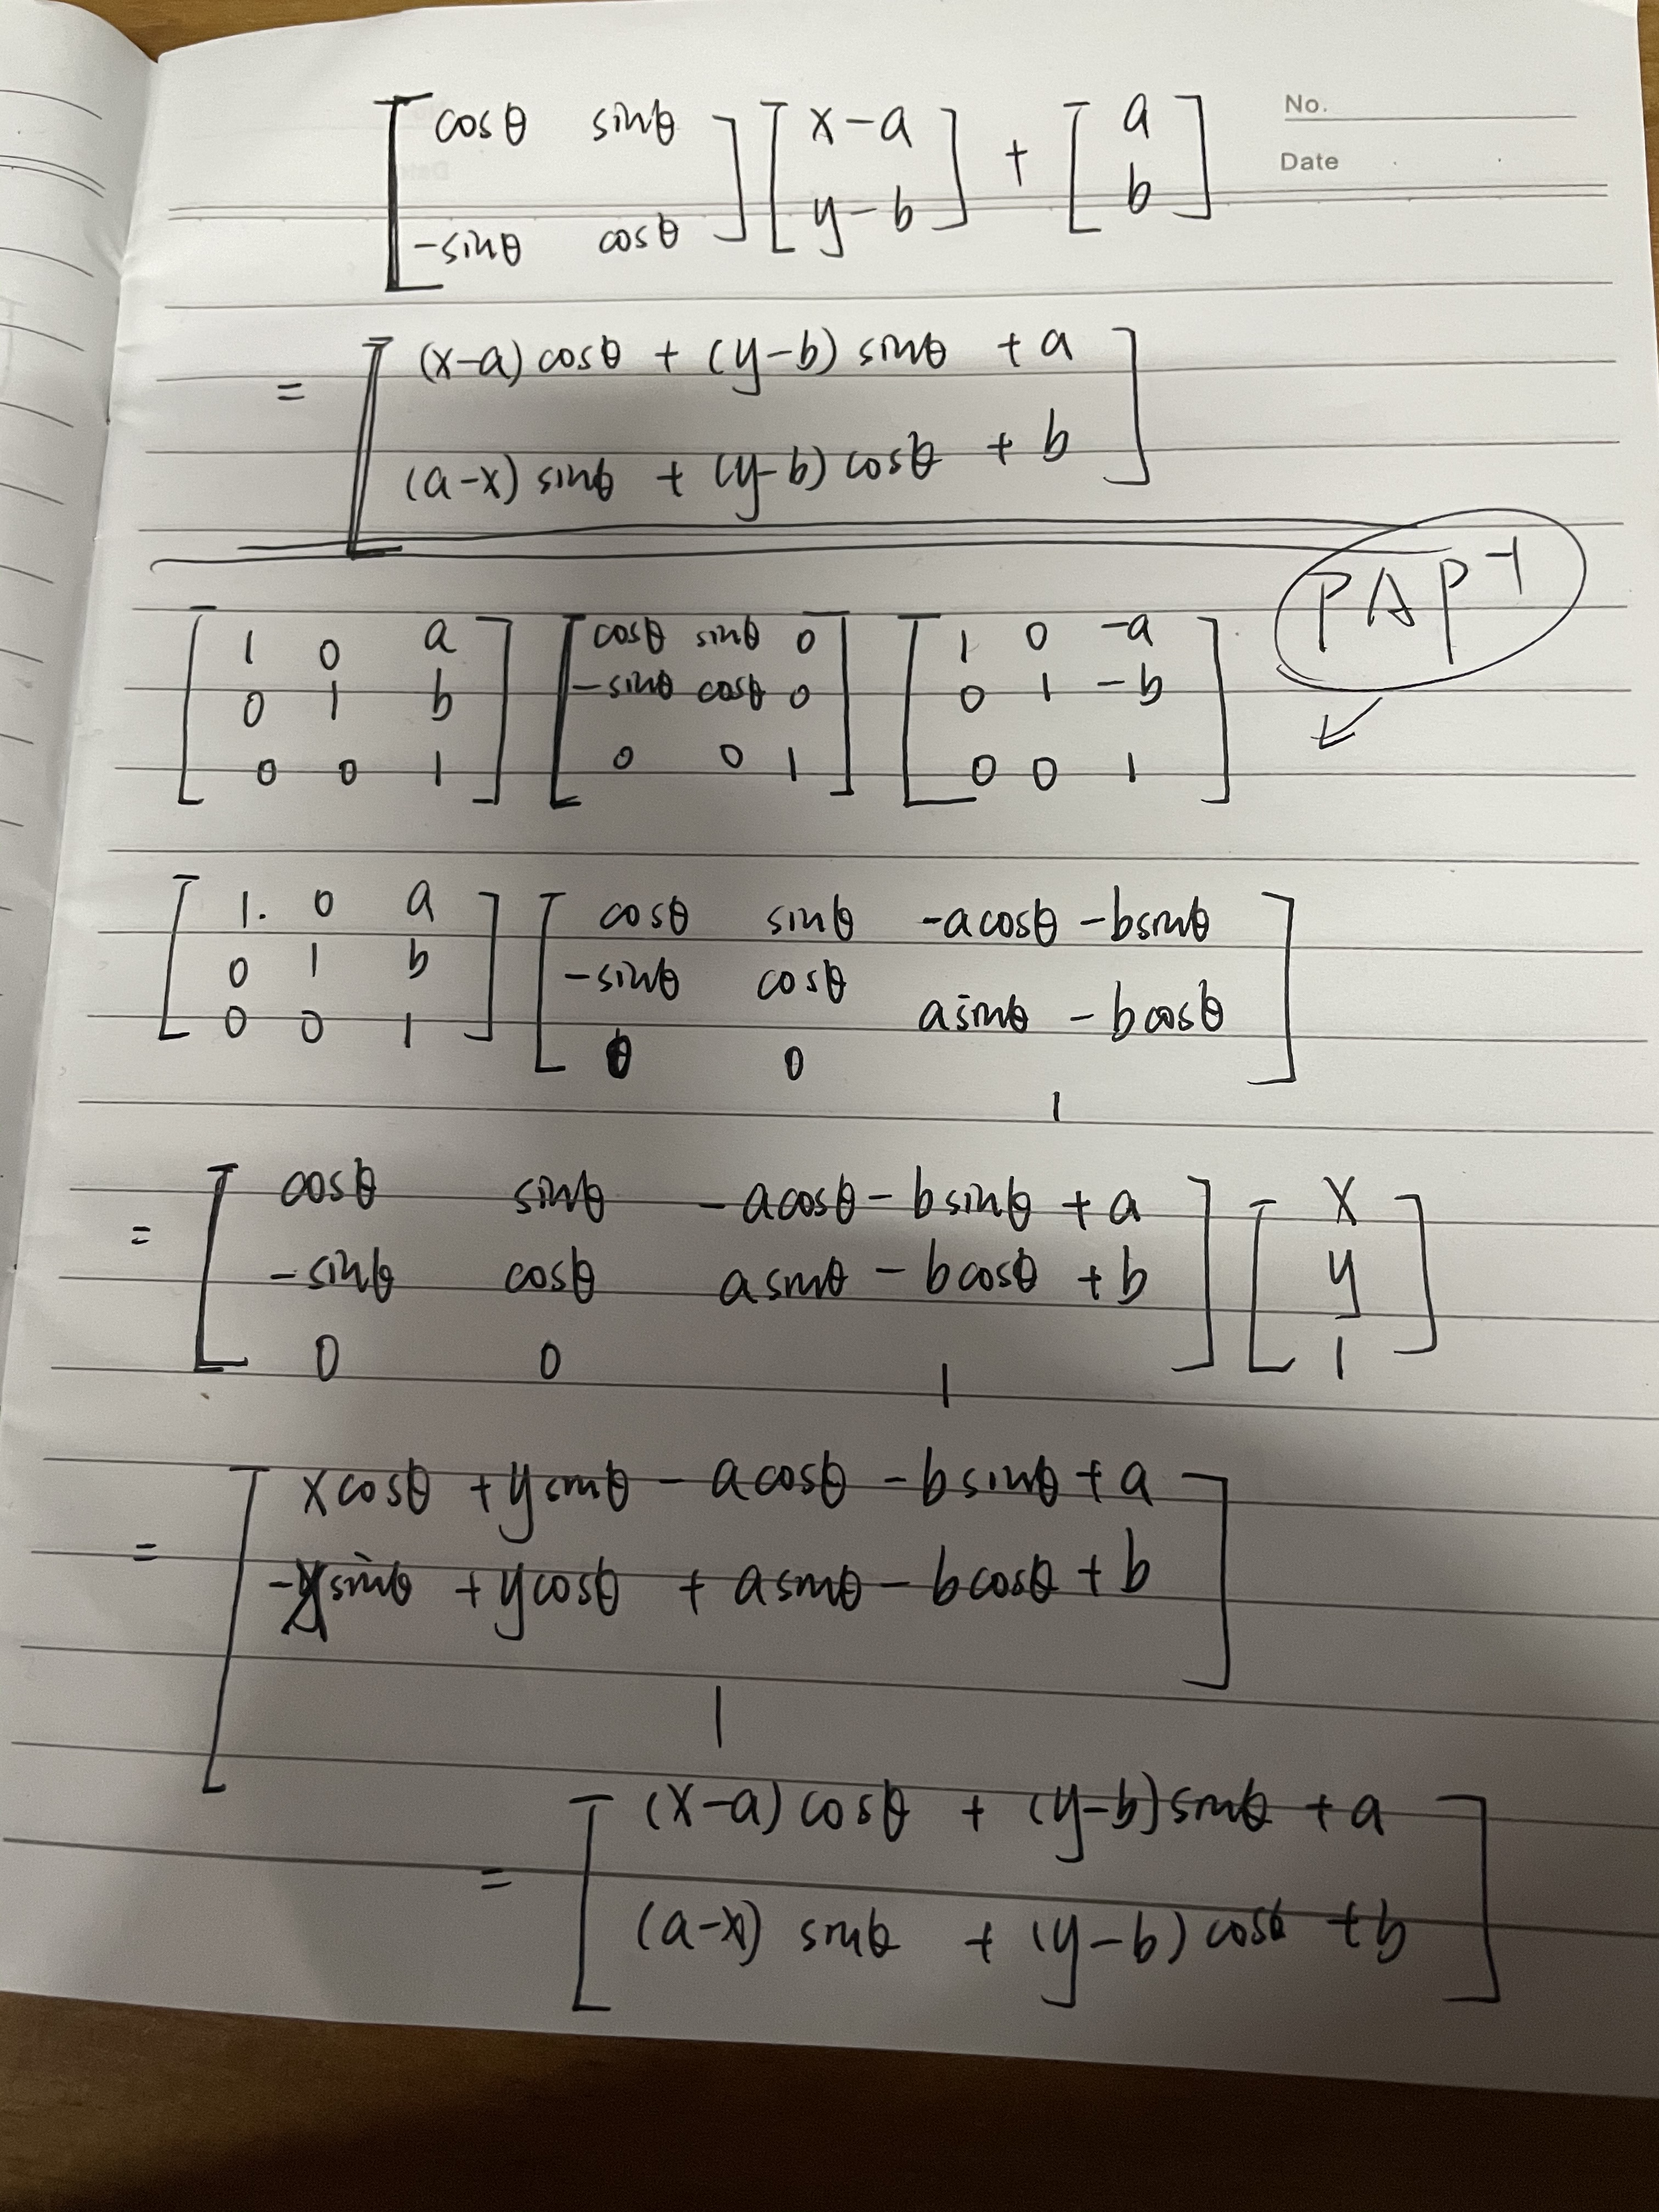 No.
Date
[ cosθ sinθ ] [ x-a ] + [ a ]
[ -sinθ cosθ ] [ y-b ] [ b ]
= [ (x-a)cosθ + (y-b)sinθ + a ]
[ (a-x)sinθ + (y-b)cosθ + b ]
PAP⁻¹
[ 1 0 a ] [ cosθ sinθ 0 ] [ 1 0 -a ]
[ 0 1 b ] [ -sinθ cosθ 0 ] [ 0 1 -b ]
[ 0 0 1 ] [ 0 0 1 ] [ 0 0 1 ]
[ 1. 0 a ] [ cosθ sinθ -acosθ - bsinθ ]
[ 0 1 b ] [ -sinθ cosθ asinθ - bcosθ ]
[ 0 0 1 ] [ 0 0 1 ]
= [ cosθ sinθ -acosθ - bsinθ + a ] [ x ]
[ -sinθ cosθ asinθ - bcosθ + b ] [ y ]
[ 0 0 1 ] [ 1 ]
= [ xcosθ + ysinθ - acosθ - bsinθ + a ]
[ -xsinθ + ycosθ + asinθ - bcosθ + b ]
[ 1 ]
= [ (x-a)cosθ + (y-b)sinθ + a ]
[ (a-x)sinθ + (y-b)cosθ + b ]